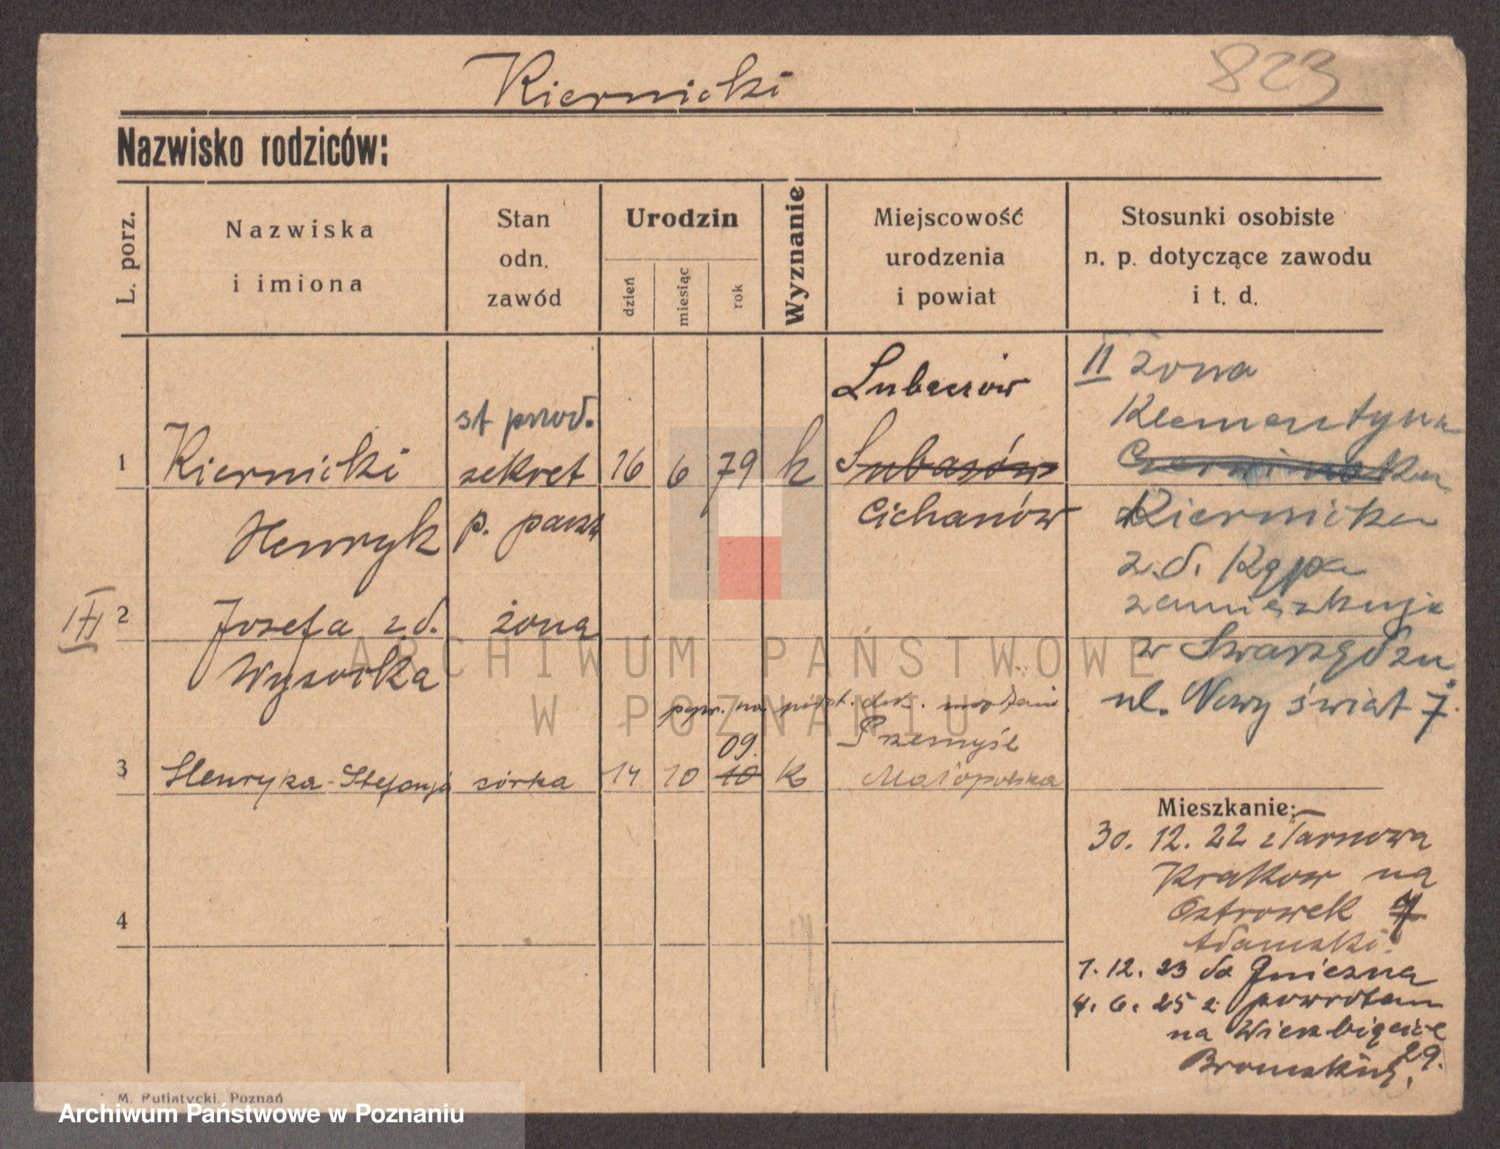 Kiernicki
823
Nazwisko rodziców:
L. porz.
Nazwiska
i imiona
Stan
odn.
zawód
Urodzin
dzień
miesiąc
rok
Wyznanie
Miejscowość
urodzenia
i powiat
Stosunki osobiste
n. p. dotyczące zawodu
i t. d.
1
Kiernicki
Henryk
sekret
16 6 79 k
Lubaczów
Cichanów
II żona
Klementyna
Kiernicka
z.d. Kępa
zamieszkuje
w Swarzędzu
ul. Nowy świat 7.
III
2
Józefa z d.
Wysocka
żona
3
Henryka-Stefanja
córka
14 10 09. 10 K
Przemyśl
Małopolska
4
Mieszkanie:
30. 12. 22 z Tarnowa
Krakow na
Ostrowek 7
Adamski.
1. 12. 23 do Gniezna
4. 6. 25 z powrotem
na Wierzbięcice
29.
M. Putiatycki, Poznań
ARCHIWUM PAŃSTWOWE
W POZNANIU
Archiwum Państwowe w Poznaniu